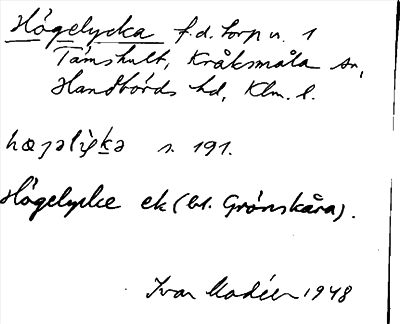 Högelycka f.d. torp u. 1
Támshult, Kråksmåla sn,
Handbörds hd, Klm. l.
hœgəlyk̠ə s. 191.
Högelycke ek (bl. Grönskåra).
Ivar Modéer 1948